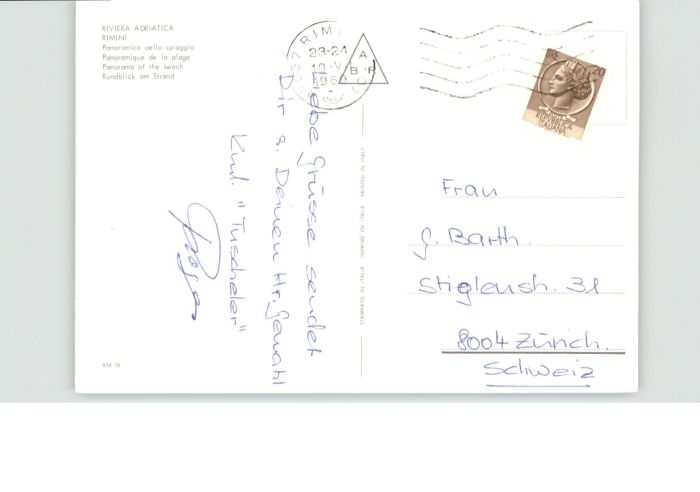 RIVIERA ADRIATICA
RIMINI
Panoramica della spiaggia
Panoramique de la plage
Panorama of the beach
Rundblick am Strand
Liebe Grüsse sendet
Dir & Deinen Hr. Gemahl
"Tuscheler"
STAMPATO IN ITALIA IMPRIME EN ITALIE PRINTED IN ITALY
RM 79
RIMINI
23-24
A
B R
LIRE 20
REPUBBLICA
ITALIANA
Frau
G. Barth.
8004 Zürich.
Schweiz